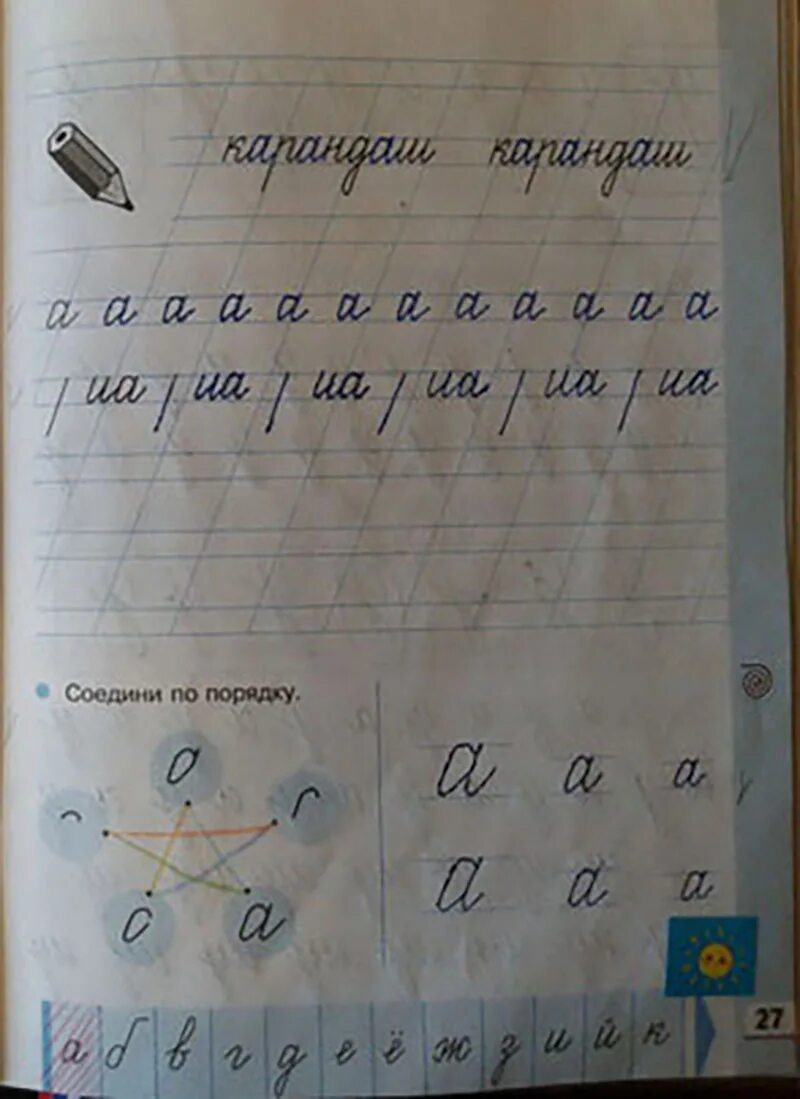 карандаш карандаш
а а а а а а а а а а а а
иа иа иа иа иа иа
Соедини по порядку.
о
с а
а а а
а а а
а б в г д е ё ж з и й к
27